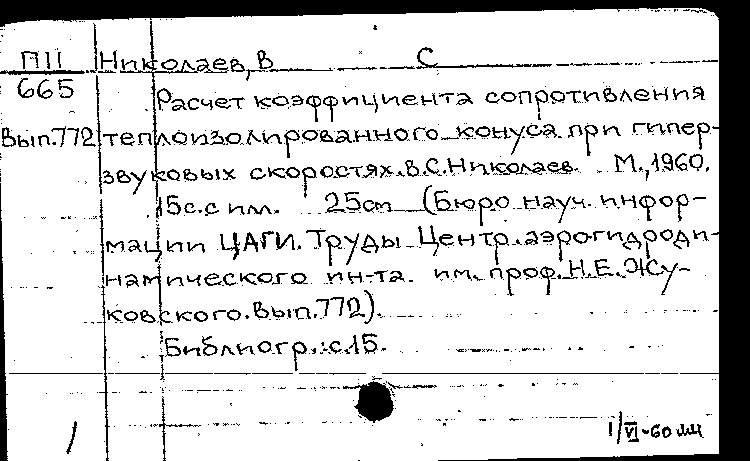 П11 Николаев, В С
665
Расчет коэффициента сопротивления
Вып.772 теплоизолированного конуса при гипер-
звуковых скоростях. В.С. Николаев. М., 1960.
15 с. с илл. 25 см (Бюро науч. инфор-
мации ЦАГИ. Труды Центр. аэрогидроди-
намического ин-та. им. проф. Н.Е. Жу-
ковского. Вып.772).
Библиогр.: с.15.
1/VI-60